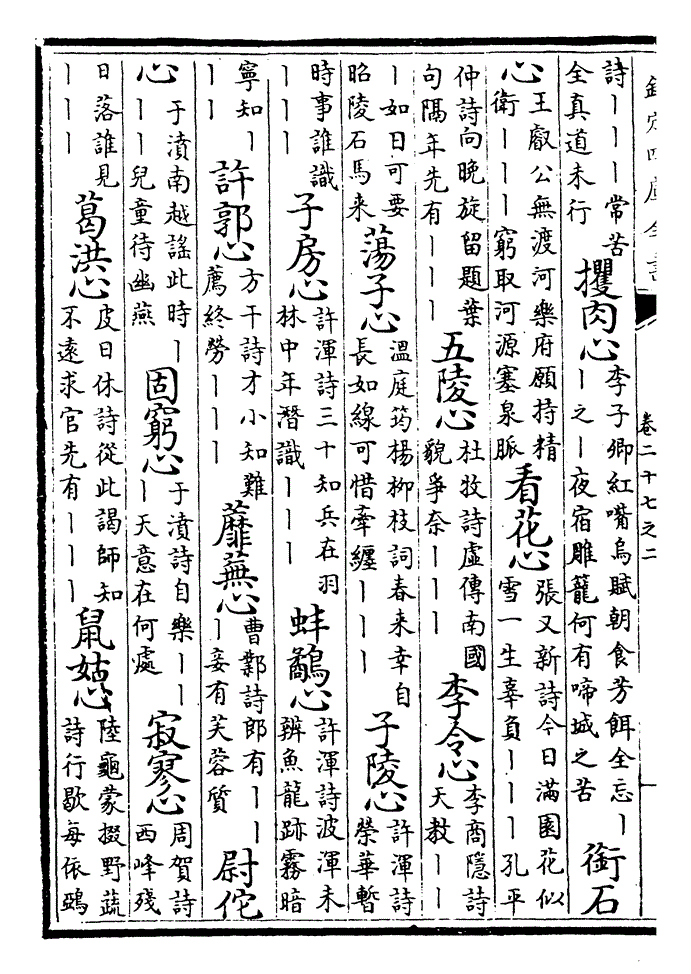 欽定四庫全書
卷二十七之二
詩｜｜｜常苦
全真道未行
攫肉心
李子卿紅嘴烏賦朝食芳餌全忘｜
｜之｜夜宿雕籠何有啼城之苦
銜石
心
王叡公無渡河樂府願持精
衛｜｜｜窮取河源塞泉脈
看花心
張又新詩今日滿園花似
雪一生辜負｜｜｜孔平
仲詩向晚旋留題葉
句隔年先有｜｜｜
五陵心
杜牧詩虛傳南國
貌爭奈｜｜｜
李令心
李商隱詩
天教｜｜
｜如日可要
昭陵石馬来
蕩子心
溫庭筠楊柳枝詞春来幸自
長如線可惜牽纏｜｜｜
子陵心
許渾詩
榮華暫
時事誰識
｜｜｜
子房心
許渾詩三十知兵在羽
林中年潛識｜｜｜
蚌鷸心
許渾詩波渾未
辨魚龍跡霧暗
寧知｜
｜｜
許郭心
方干詩才小知難
薦終勞｜｜｜
蘼蕪心
曹鄴詩郎有｜｜
｜妾有芙蓉質
尉佗
心
于濆南越謠此時｜
｜｜兒童待幽燕
固窮心
于濆詩自樂｜｜
｜天意在何處
寂寥心
周賀詩
西峰殘
日落誰見
｜｜｜
葛洪心
皮日休詩從此謁師知
不遠求官先有｜｜｜
鼠姑心
陸龜蒙掇野蔬
詩行歇每依鴉